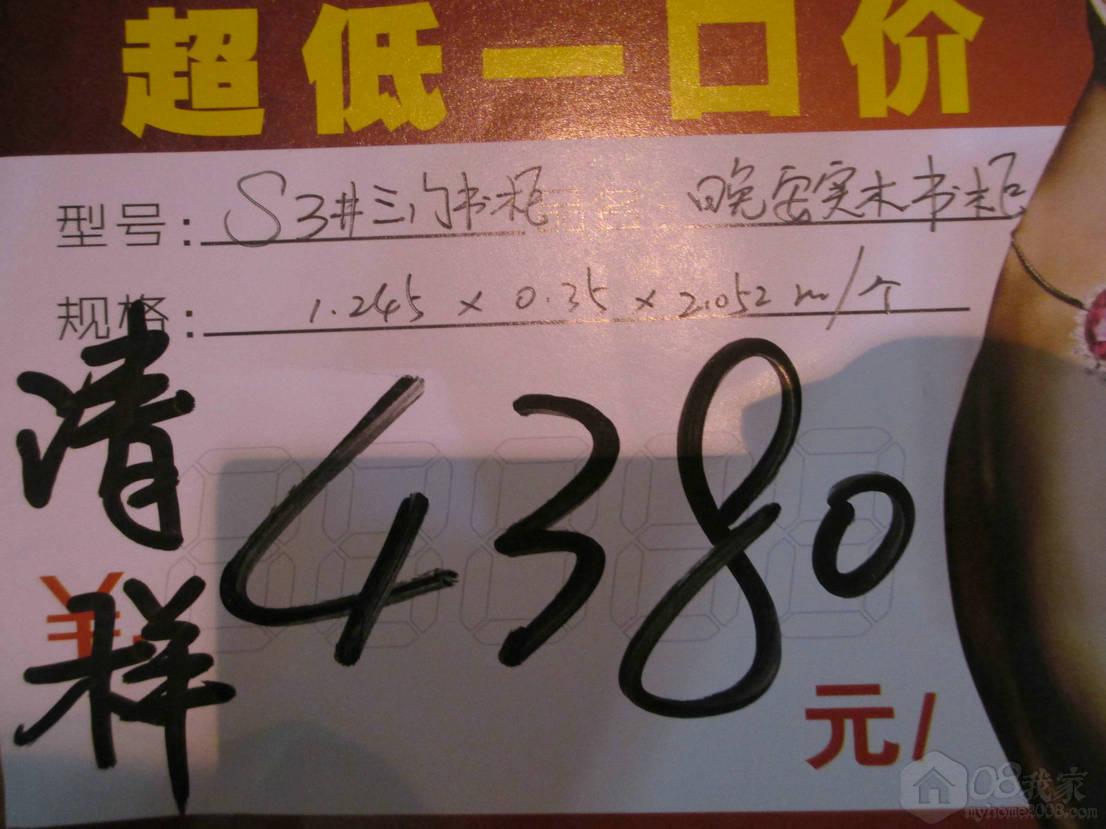 超低一口价
型号: S3#三门书柜 晚安实木书柜
规格: 1.245 x 0.35 x 2.052 m/个
清样
¥
4380
元/
08我家
myhome2008.com